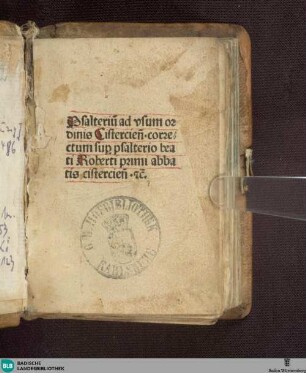 Psalteriū ad vsum or
dinis Cistercieñ·corre⸗
ctum suꝑ psalterio bea
ti Roberti primi abba
tis cistercieñ ·⁊c̄.
HOFBIBLIOTHEK
KARLSRUHE
BLB
BADISCHE
LANDESBIBLIOTHEK